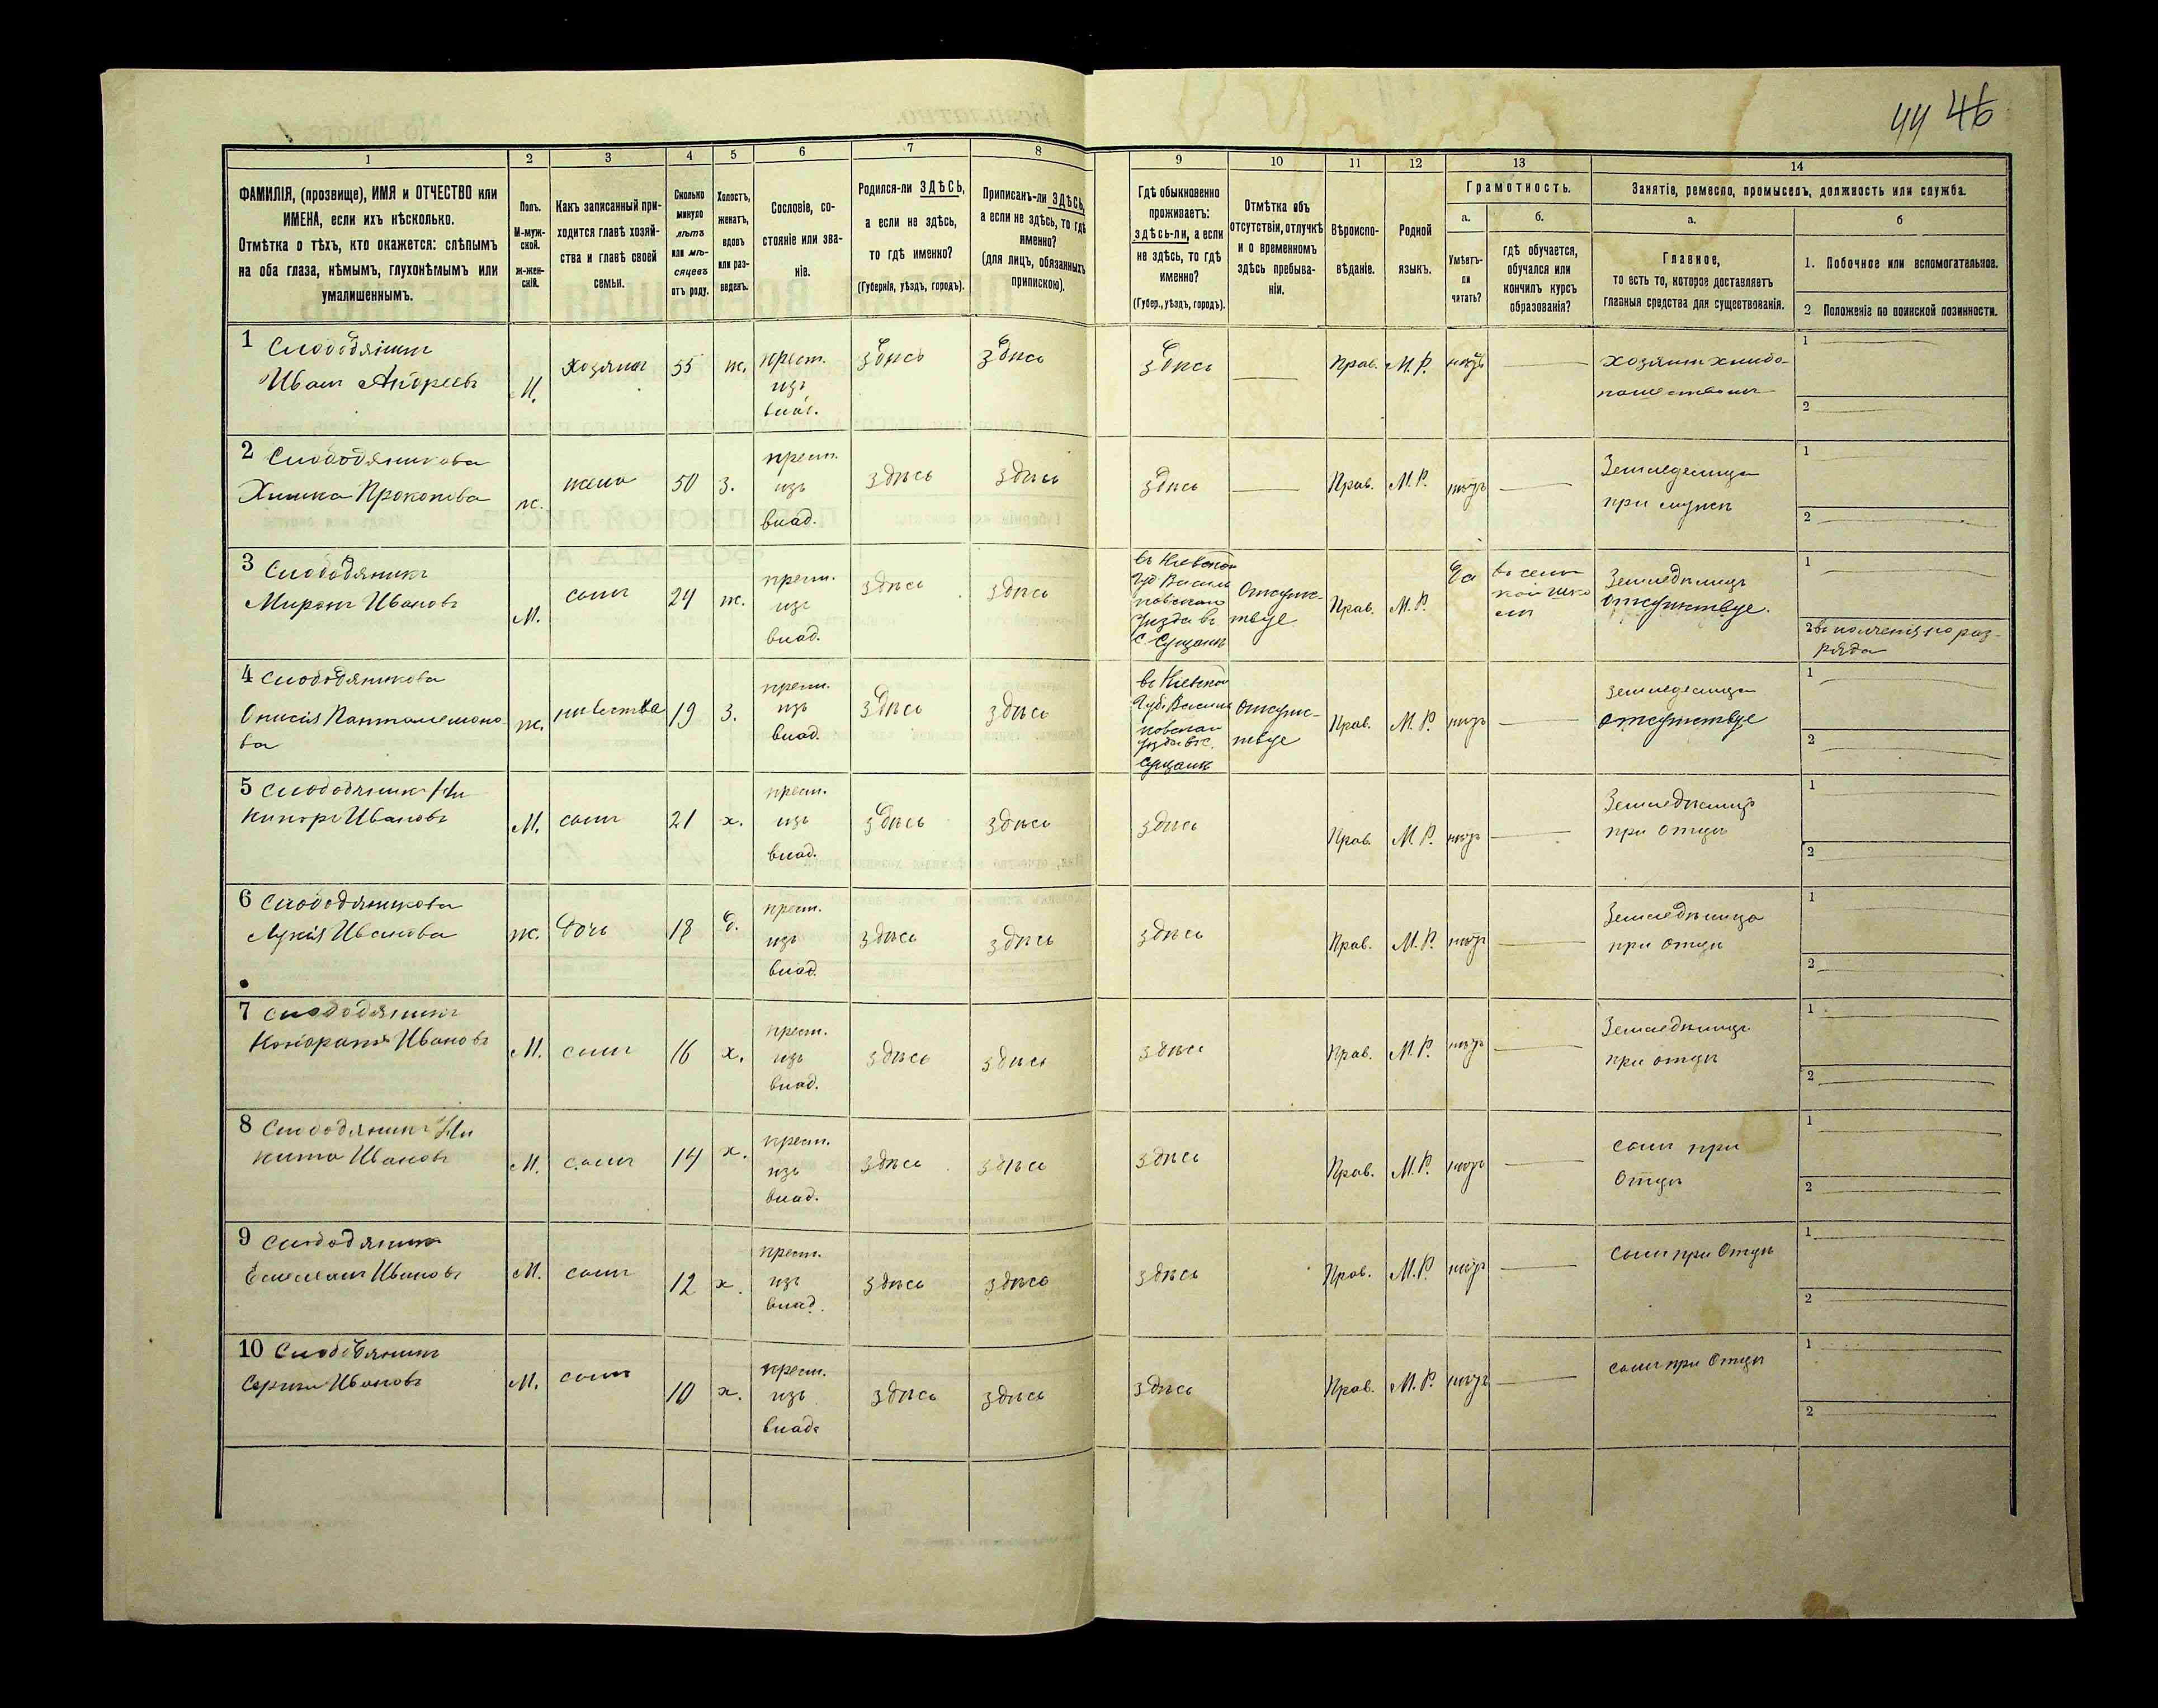 44 46
1 2 3 4 5 6 7 8 9 10 11 12 13 14
ФАМИЛІЯ, (прозвище), ИМЯ и ОТЧЕСТВО или
ИМЕНА, если ихъ нѣсколько.
Отмѣтка о тѣхъ, кто окажется: слѣпымъ
на оба глаза, нѣмымъ, глухонѣмымъ или
умалишеннымъ.
Полъ.
М-муж-
ской.
ж-жен-
скій.
Какъ записанный при-
ходится главѣ хозяй-
ства и главѣ своей
семьи.
Сколько
минуло
лѣтъ
или мѣ-
сяцевъ
отъ роду.
Холостъ,
женатъ,
вдовъ
или раз-
веденъ.
Сословіе, со-
стояніе или зва-
ніе.
Родился-ли ЗДѢСЬ,
а если не здѣсь,
то гдѣ именно?
(Губернія, уѣздъ, городъ).
Приписанъ-ли ЗДѢСЬ,
а если не здѣсь, то гдѣ
именно?
(для лицъ, обязанныхъ
припискою).
Гдѣ обыкновенно
проживаетъ:
здѣсь-ли, а если
не здѣсь, то гдѣ
именно?
(Губер., уѣздъ, городъ).
Отмѣтка объ
отсутствіи, отлучкѣ
и о временномъ
здѣсь пребыва-
ніи.
Вѣроиспо-
вѣданіе.
Родной
языкъ.
Грамотность.
а.
Умѣетъ-
ли
читать?
б.
гдѣ обучается,
обучался или
кончилъ курсъ
образованія?
Занятіе, ремесло, промыселъ, должность или служба.
а.
Главное,
то есть то, которое доставляетъ
главныя средства для существованія.
б
1. Побочное или вспомогательное.
2 Положеніе по воинской повинности.
1 Слободяникъ
Иванъ Андреевъ
М.
Хозяинъ
55
ж.
крест.
изъ
влад.
здѣсь
здѣсь
здѣсь
Прав.
М. Р.
нѣтъ
хозяинъ хлѣбо-
пашествомъ
1
2
2 Слободяникова
Химка Прокопова
ж.
жена
50
з.
крест.
изъ
влад.
здѣсь
здѣсь
здѣсь
Прав.
М. Р.
нѣтъ
Земледелица
при мужѣ
1
2
3 Слободяникъ
Миронъ Ивановъ
М.
сынъ
24
ж.
крест.
изъ
влад.
здѣсь
здѣсь
въ Кіевской
Губ Василь
ковскаго
уѣзда въ
с.
Отсутс-
твуе
Прав.
М. Р.
Да
въ сель
кой шко
лѣ
Земледѣлецъ
отсутствуе.
1
2
4 Слободяникова
Онисія Пантелемоно
ва
ж.
нивестка
19
з.
крест.
изъ
влад.
здѣсь
здѣсь
въ Кіевской
Губ. Василь
ковскаго
уѣзда въ с.
Отсутс-
твуе
Прав.
М. Р.
нѣтъ
земледелица
отсутствуе
1
2
5 Слободяникъ Ни
кифоръ Ивановъ
М.
сынъ
21
х.
крест.
изъ
влад.
здѣсь
здѣсь
здѣсь
Прав.
М. Р.
нѣтъ
Земледѣлецъ
при отцѣ
1
2
6 Слободяникова
Лукія Иванова
ж.
дочь
18
д.
крест.
изъ
влад.
здѣсь
здѣсь
здѣсь
Прав.
М. Р.
нѣтъ
Земледѣлица
при отцѣ
1
2
7 Слободяникъ
Кондратій Ивановъ
М.
сынъ
16
х.
крест.
изъ
влад.
здѣсь
здѣсь
здѣсь
Прав.
М. Р.
нѣтъ
Земледѣлецъ
при отцѣ
1
2
8 Слободяникъ Ни
кита Ивановъ
М.
сынъ
14
х.
крест.
изъ
влад.
здѣсь
здѣсь
здѣсь
Прав.
М. Р.
нѣтъ
сынъ при
Отцѣ
1
2
9 Слободяникъ
Емельянъ Ивановъ
М.
сынъ
12
х.
крест.
изъ
влад.
здѣсь
здѣсь
здѣсь
Прав.
М. Р.
нѣтъ
сынъ при Отцѣ
1
2
10 Слободяникъ
Сергѣй Ивановъ
М.
сынъ
10
х.
крест.
изъ
влад.
здѣсь
здѣсь
здѣсь
Прав.
М. Р.
нѣтъ
сынъ при Отцѣ
1
2